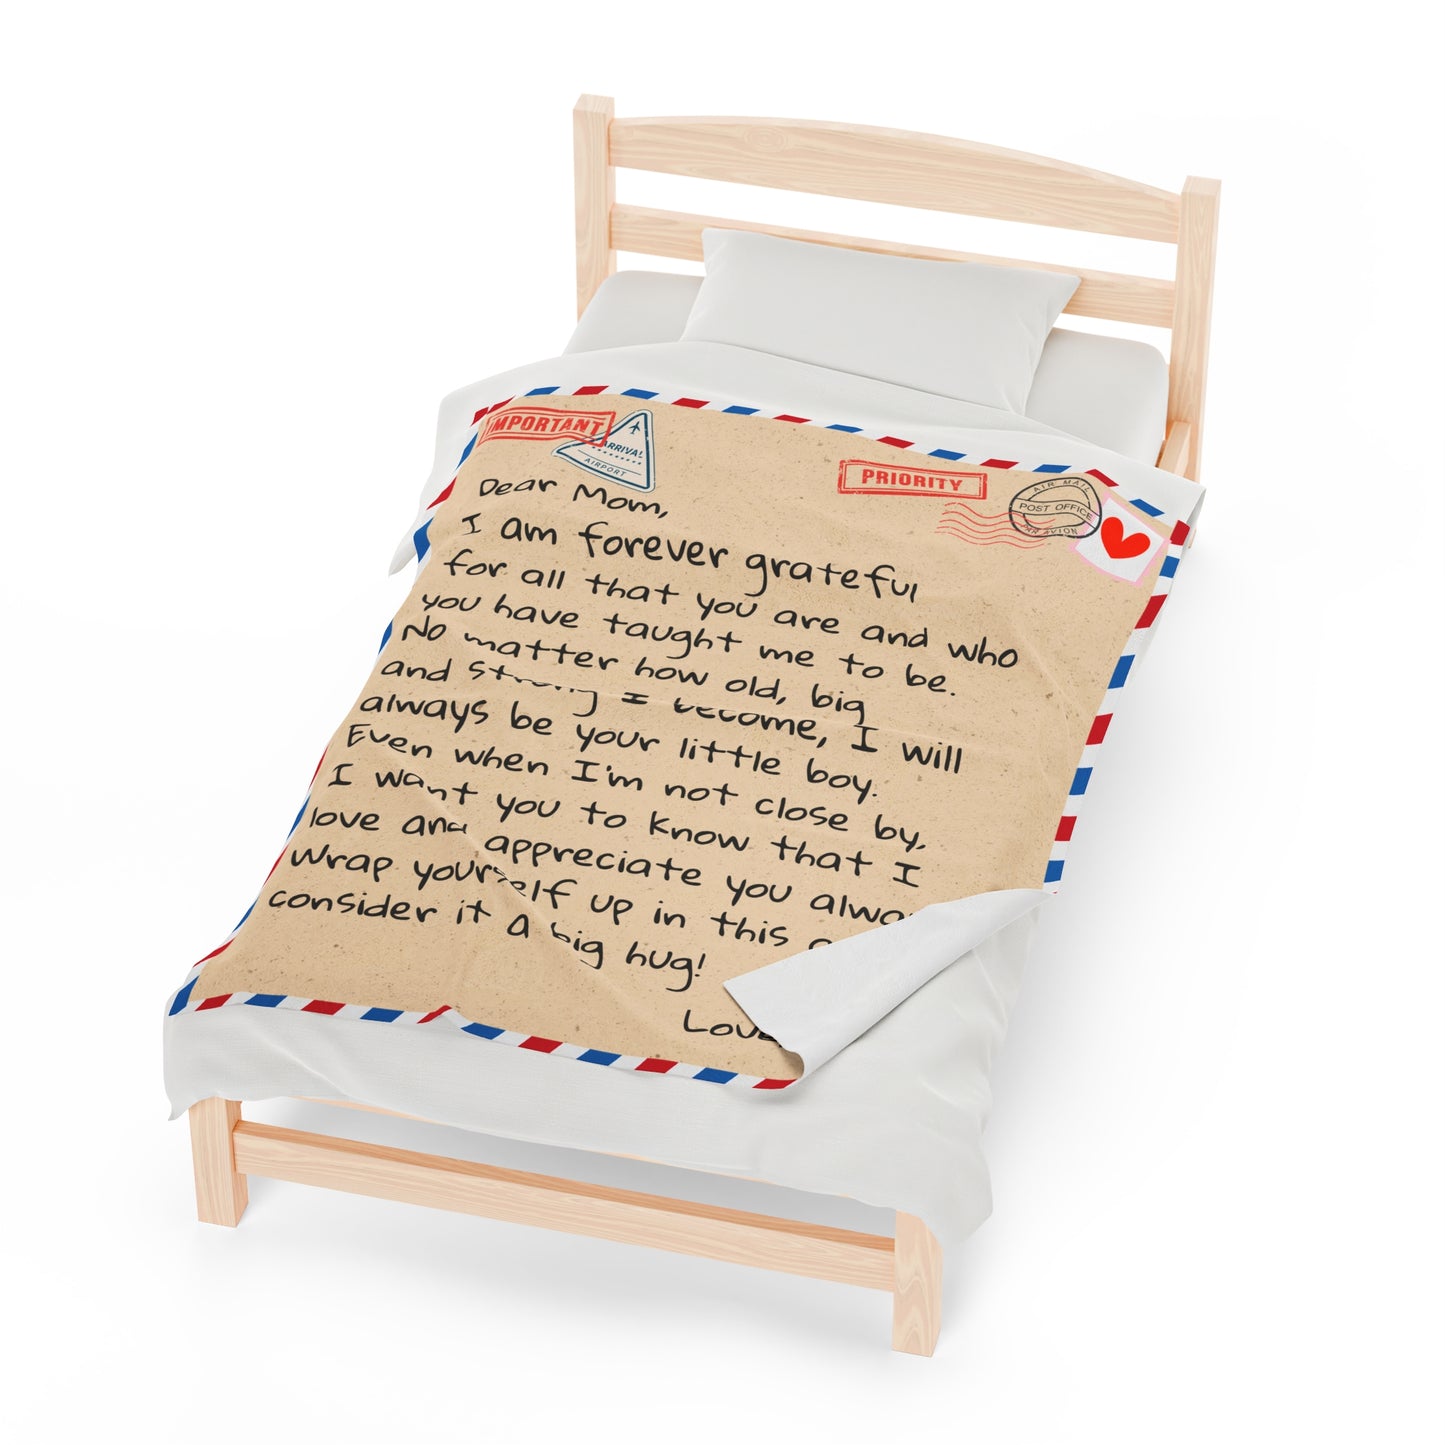 IMPORTANT
ARRIVAL
AIRPORT
PRIORITY
AIR MAIL
POST OFFICE
PAR AVION
Dear Mom,
I am forever grateful
for all that you are and who
you have taught me to be.
No matter how old, big
and strong I become, I will
always be your little boy.
Even when I'm not close by,
I want you to know that I
love and appreciate you
Wrap yourself up in this
consider it a big hug!
Love,